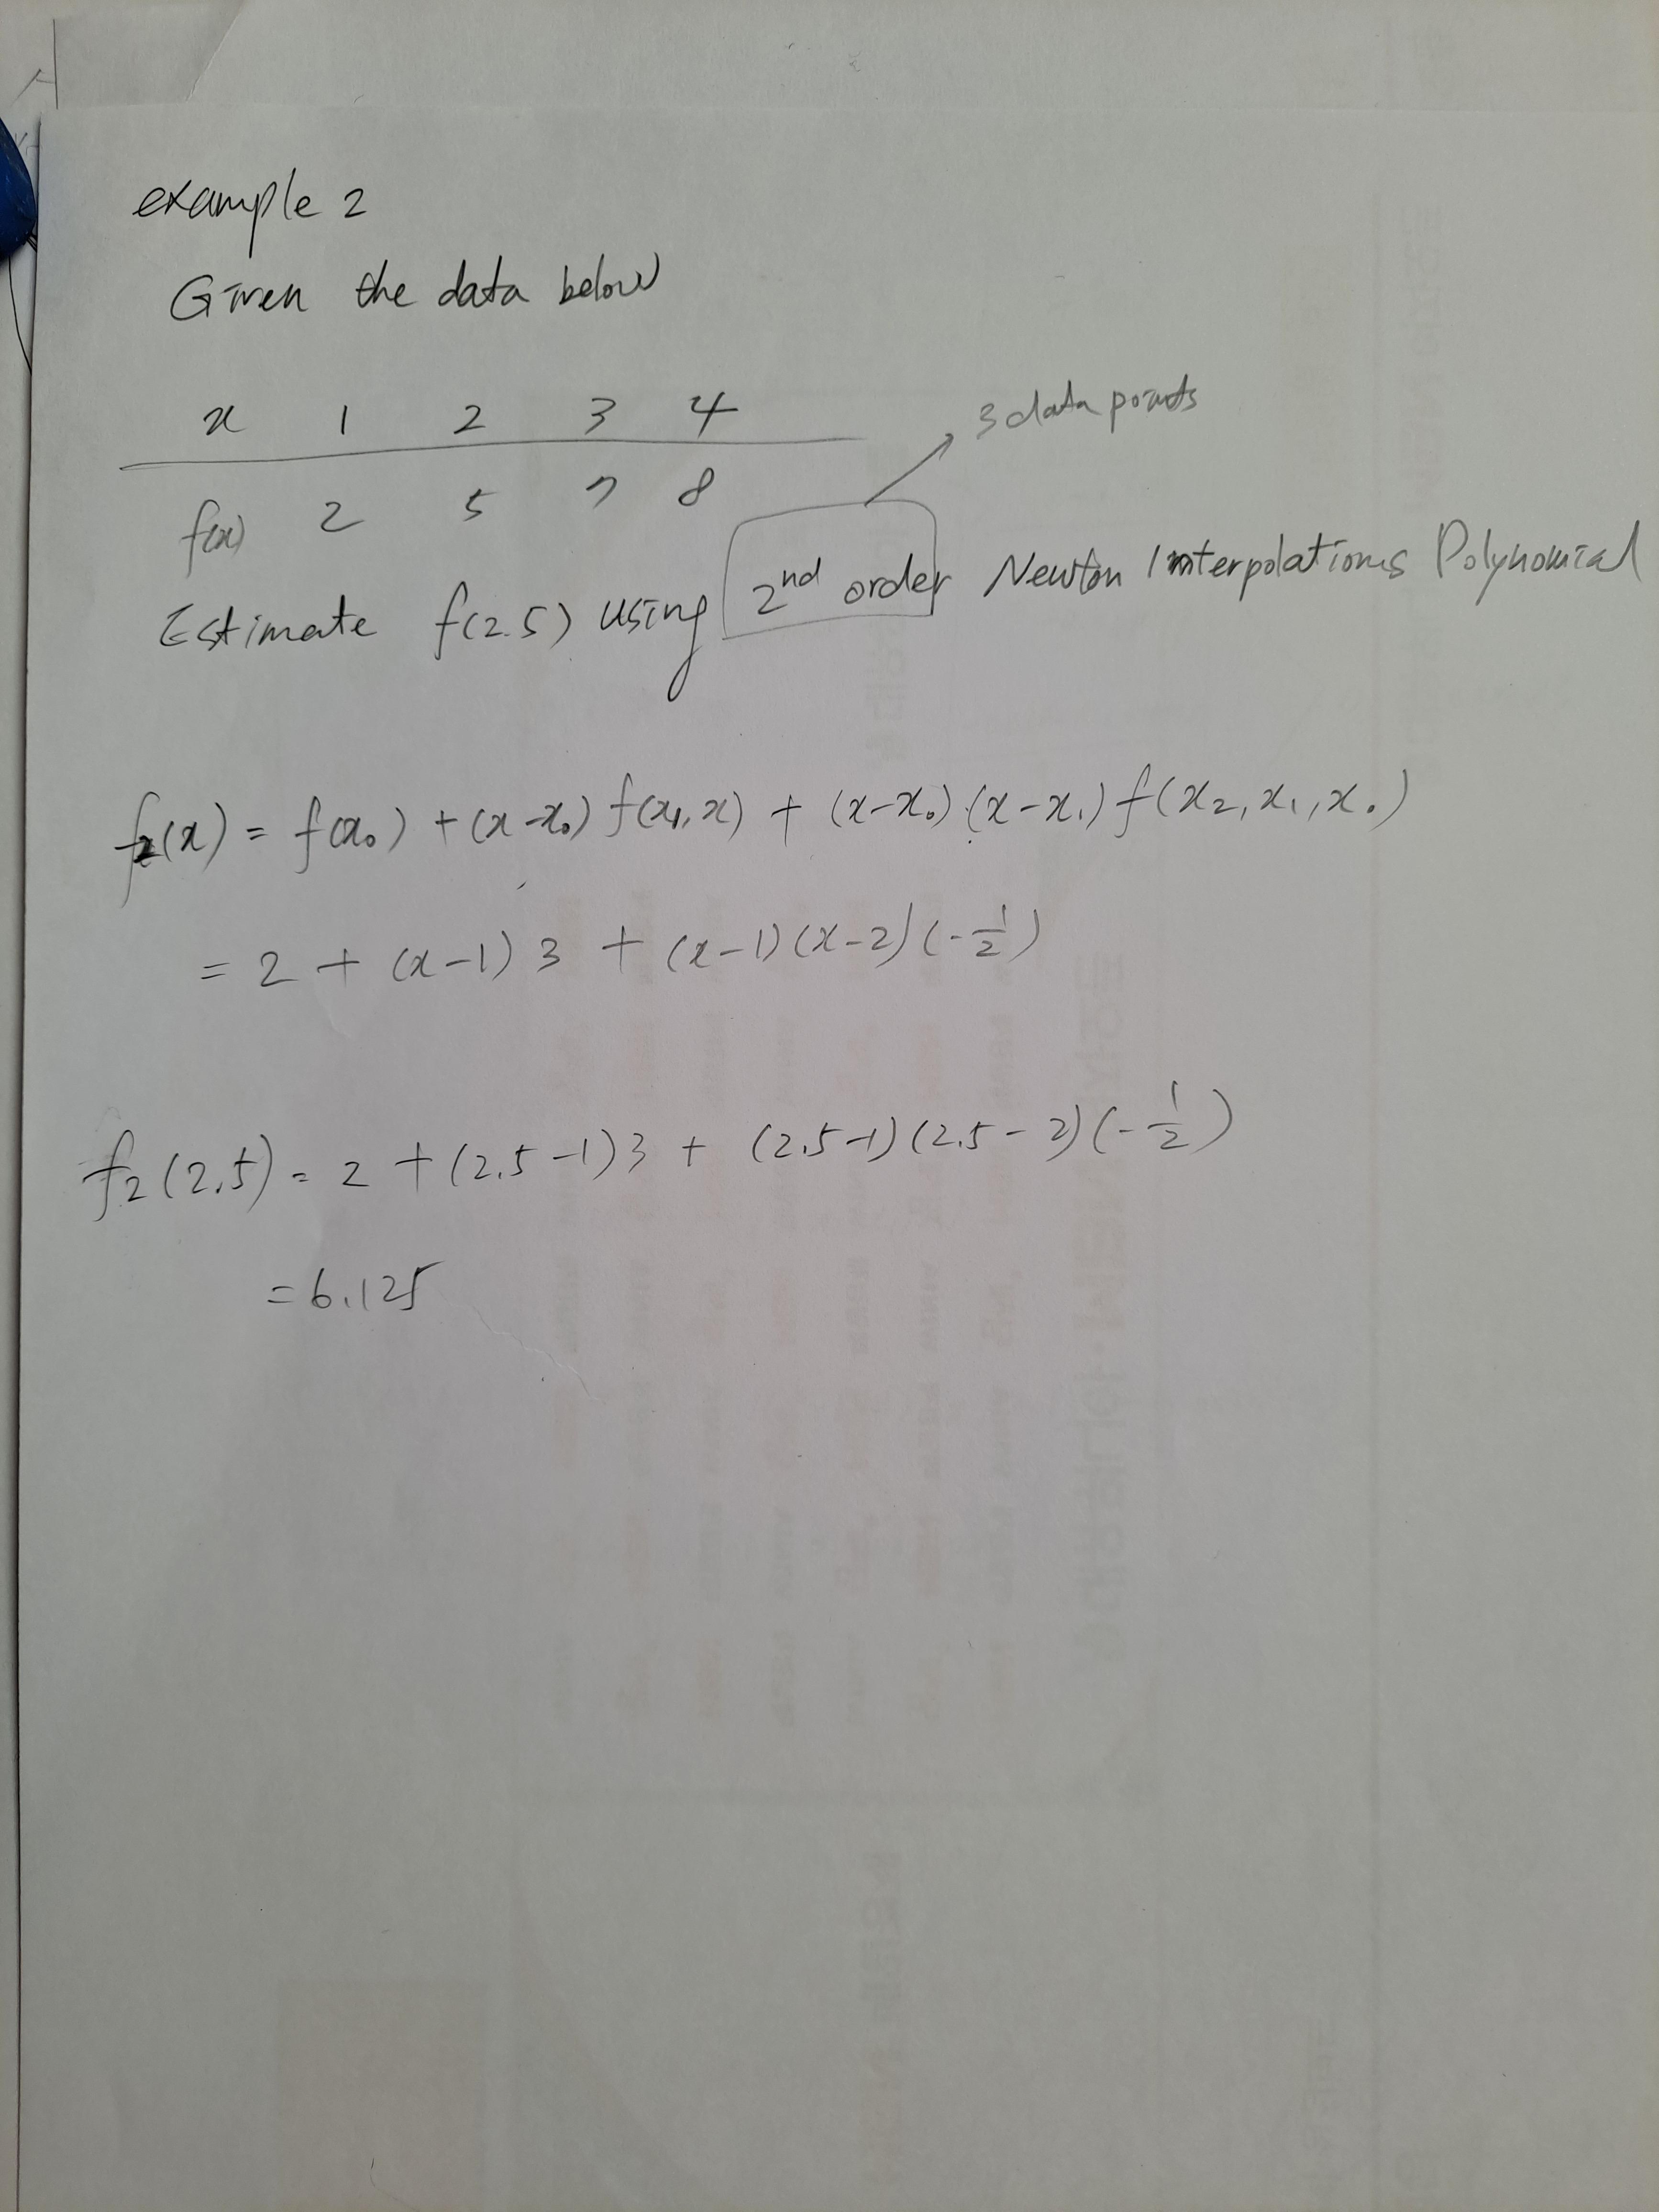 example 2
Given the data below
x 1 2 3 4
3 data points
f(x) 2 5 7 8
Estimate f(2.5) using 2nd order Newton Interpolations Polynomial
f2(x) = f(x0) + (x-x0) f(x1, x) + (x-x0) (x-x1) f(x2, x1, x0)
= 2 + (x-1) 3 + (x-1) (x-2) (-1/2)
f2(2.5) = 2 + (2.5-1)3 + (2.5-1)(2.5-2)(-1/2)
= 6.125